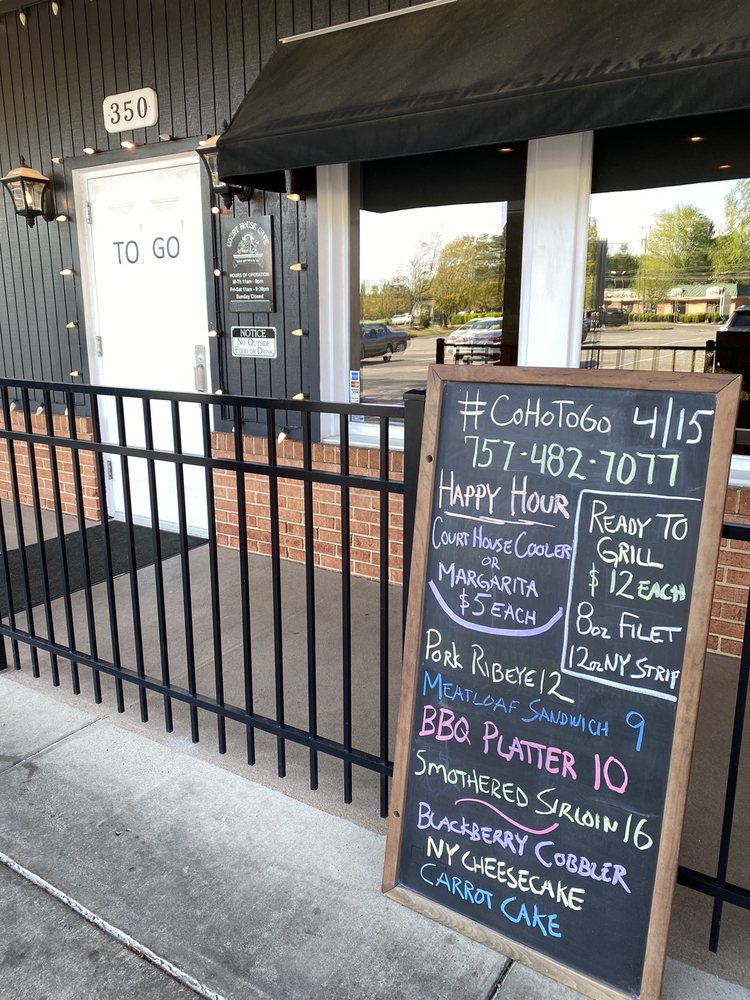 350
TO GO
COURT HOUSE CAFE
HOURS OF OPERATION
M-Th 11am - 9pm
Fri-Sat 11am - 9:30pm
Sunday Closed
NOTICE
NO OUTSIDE
FOOD OR DRINK
VISA
#COHOTOGO 4/15
757-482-7077
HAPPY HOUR
COURT HOUSE COOLER
OR
MARGARITA
$5 EACH
READY TO
GRILL
$12 EACH
8oz FILET
12oz NY STRIP
PORK RIBEYE 12
MEATLOAF SANDWICH 9
BBQ PLATTER 10
SMOTHERED SIRLOIN 16
BLACKBERRY COBBLER
NY CHEESECAKE
CARROT CAKE